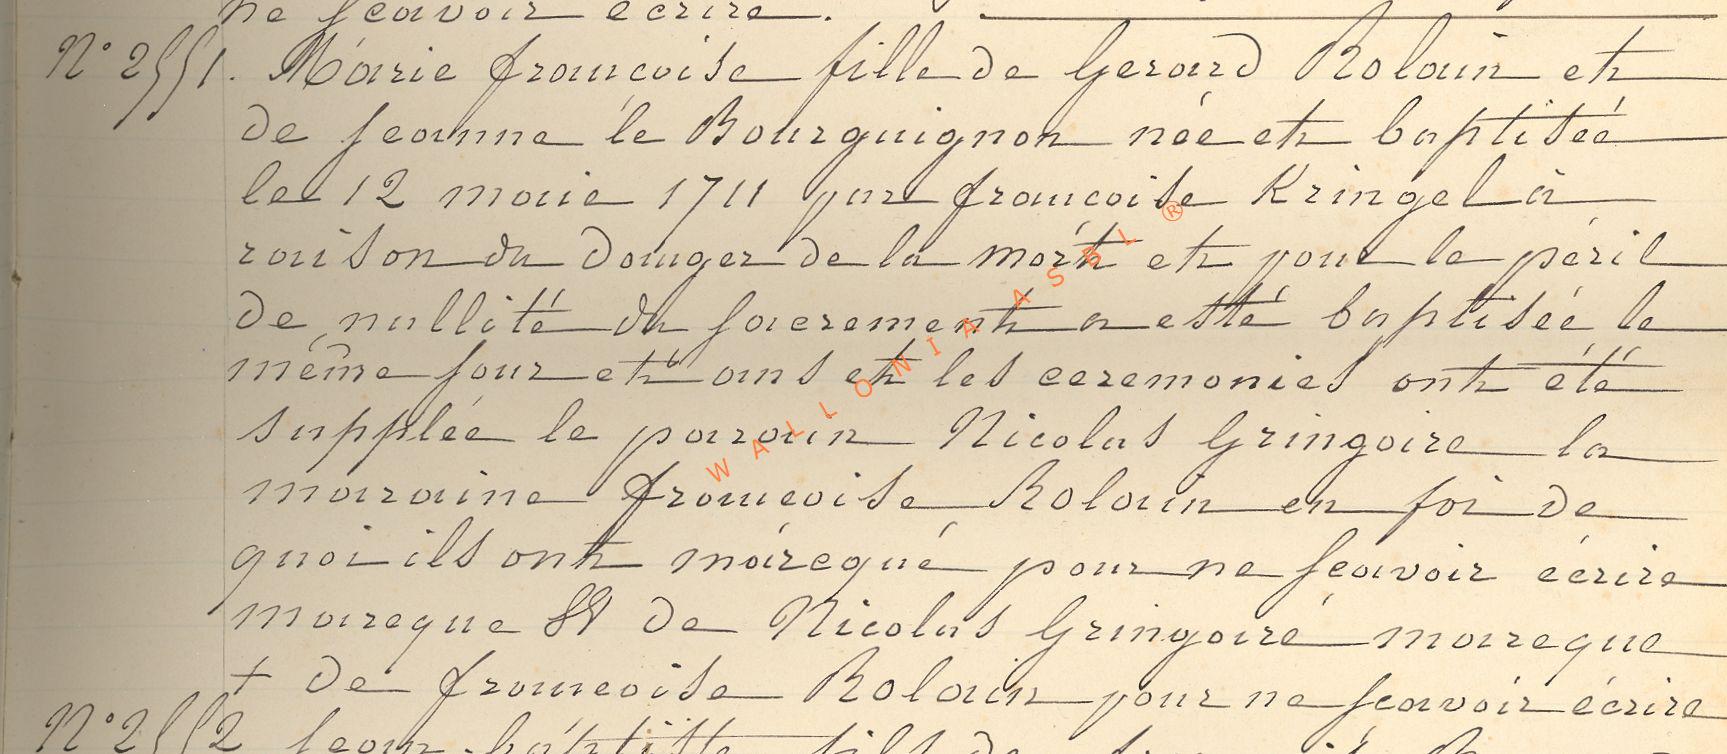 ne sçavoir écrire.
N° 2551. Marie françoise fille de Gerard Rolain et
de jeanne le Bourguignon née et baptisée
le 12 maie 1711 par françoise Kringel à
raison du danger de la mort et pour le péril
de nullité du sacrement a esté baptisée le
même jour et ans et les ceremonies ont été
supplée le parain Nicolas Gringoire la
maraine françoise Rolain en foi de
quoi ils ont marcqué pour ne sçavoir écrire
marcque de Nicolas Gringoire marcque
+ de françoise Rolain pour ne sçavoir écrire
N° 2552 jean baptiste fils de
WALLONIA ASBL ®